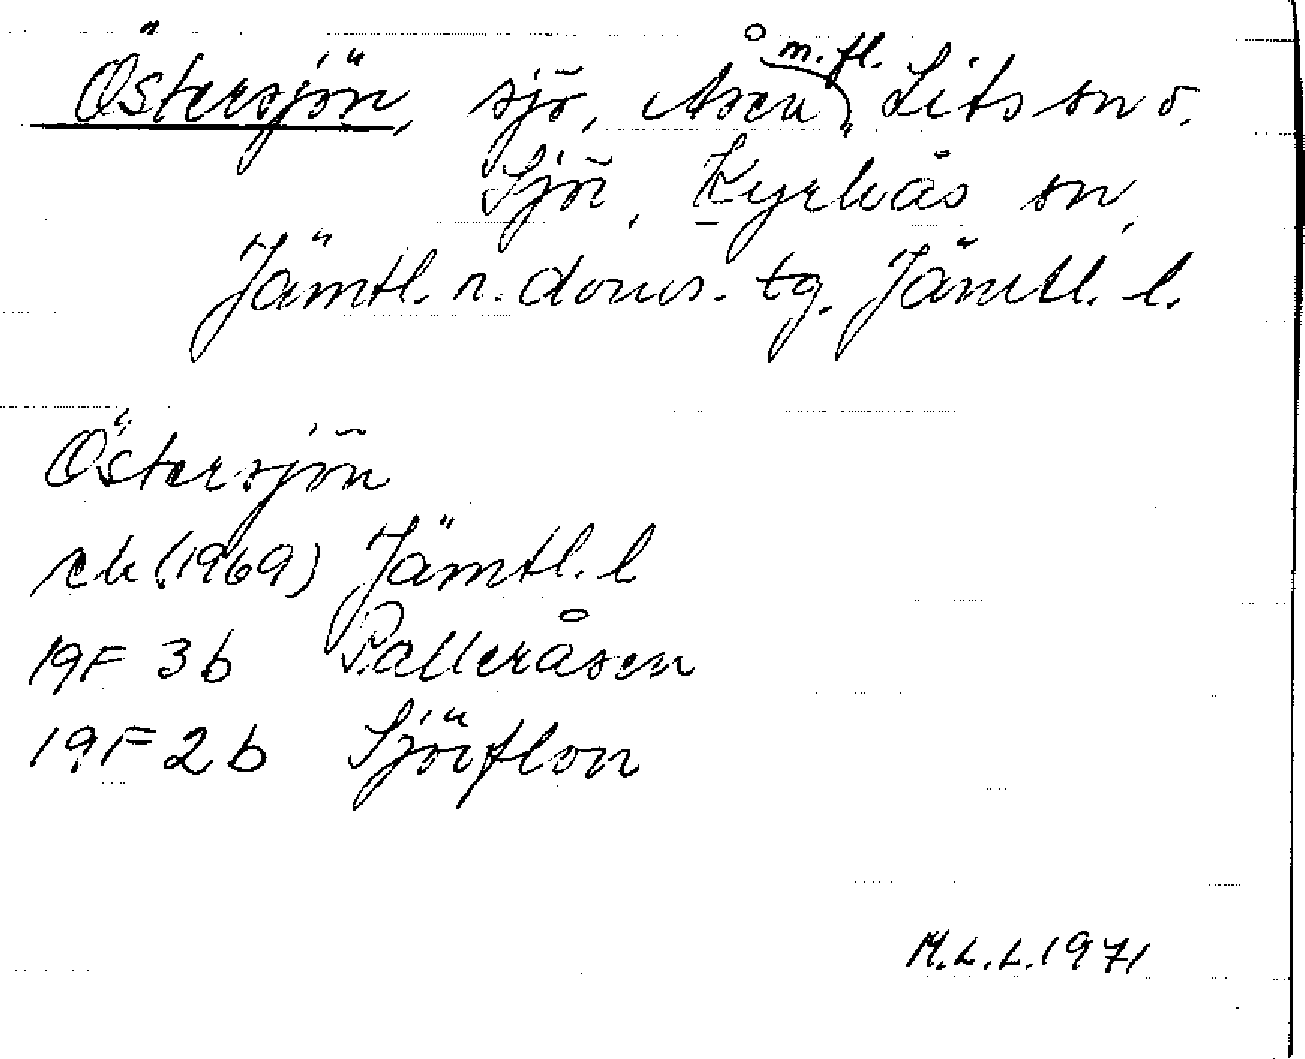 Östersjön, sjö, Åsen m.fl., Lits sn o.
Sjör, Kyrkås sn,
Jämtl. n. doms. tg. Jämtl. l.
Östersjön
rek (1969) Jämtl. l
19F 3b Palleråsen
19F 2b Sjörflon
M.L.L. 1971